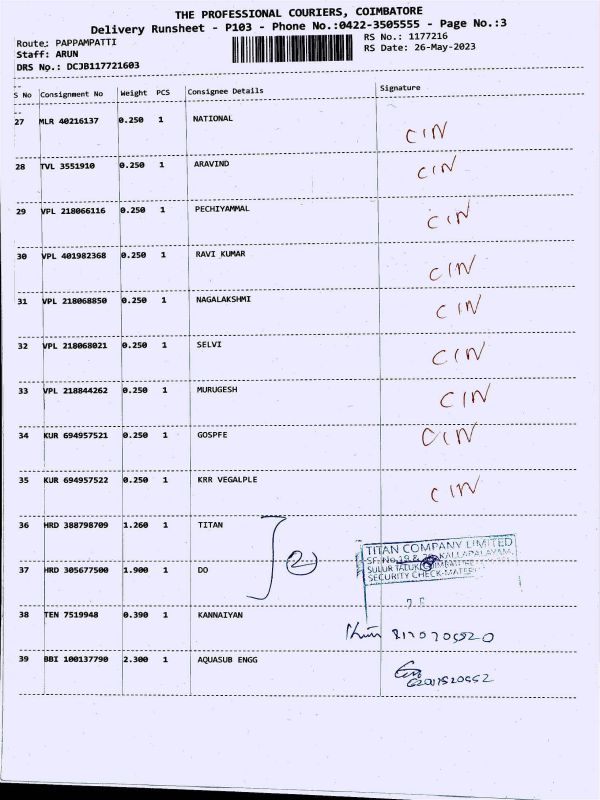 THE PROFESSIONAL COURIERS, COIMBATORE
Delivery Runsheet - P103 - Phone No.:0422-3505555 - Page No.:3
Route: PAPPAMPATTI RS No.: 1177216
Staff: ARUN RS Date: 26-May-2023
DRS No.: DCJB117721603
S No Consignment No Weight PCS Consignee Details Signature
27 MLR 40216137 0.250 1 NATIONAL CIN
28 TVL 3551910 0.250 1 ARAVIND CIN
29 VPL 218066116 0.250 1 PECHIYAMMAL CIN
30 VPL 401982368 0.250 1 RAVI KUMAR CIN
31 VPL 218068850 0.250 1 NAGALAKSHMI CIN
32 VPL 218068021 0.250 1 SELVI CIN
33 VPL 218844262 0.250 1 MURUGESH CIN
34 KUR 694957521 0.250 1 GOSPFE CIN
35 KUR 694957522 0.250 1 KRR VEGALPLE CIN
36 HRD 388798709 1.260 1 TITAN
2
TITAN COMPANY LIMITED
SF. No. KALLAPALAYAM,
SULUR TALUK
SECURITY CHECK-MATERIAL
37 HRD 305677500 1.900 1 DO
38 TEN 7519948 0.390 1 KANNAIYAN
39 BBI 100137790 2.300 1 AQUASUB ENGG